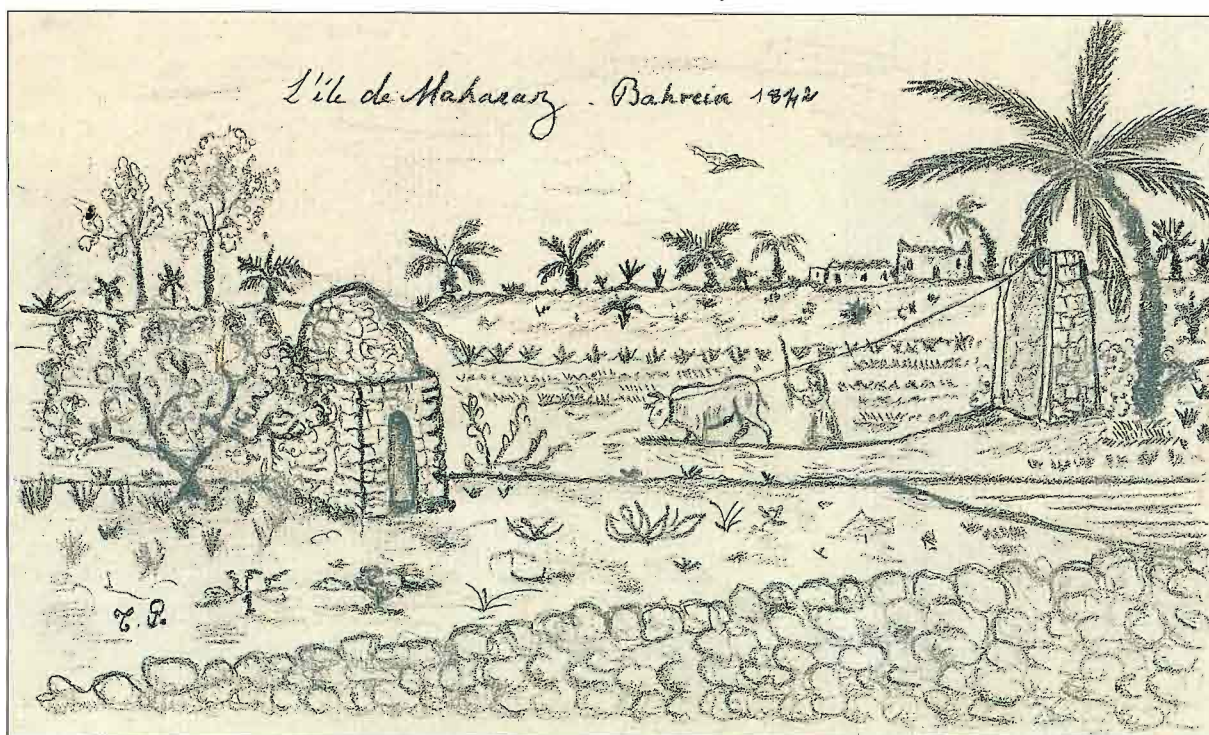 L'île de Maharaz . Bahrein 1842
T. P.